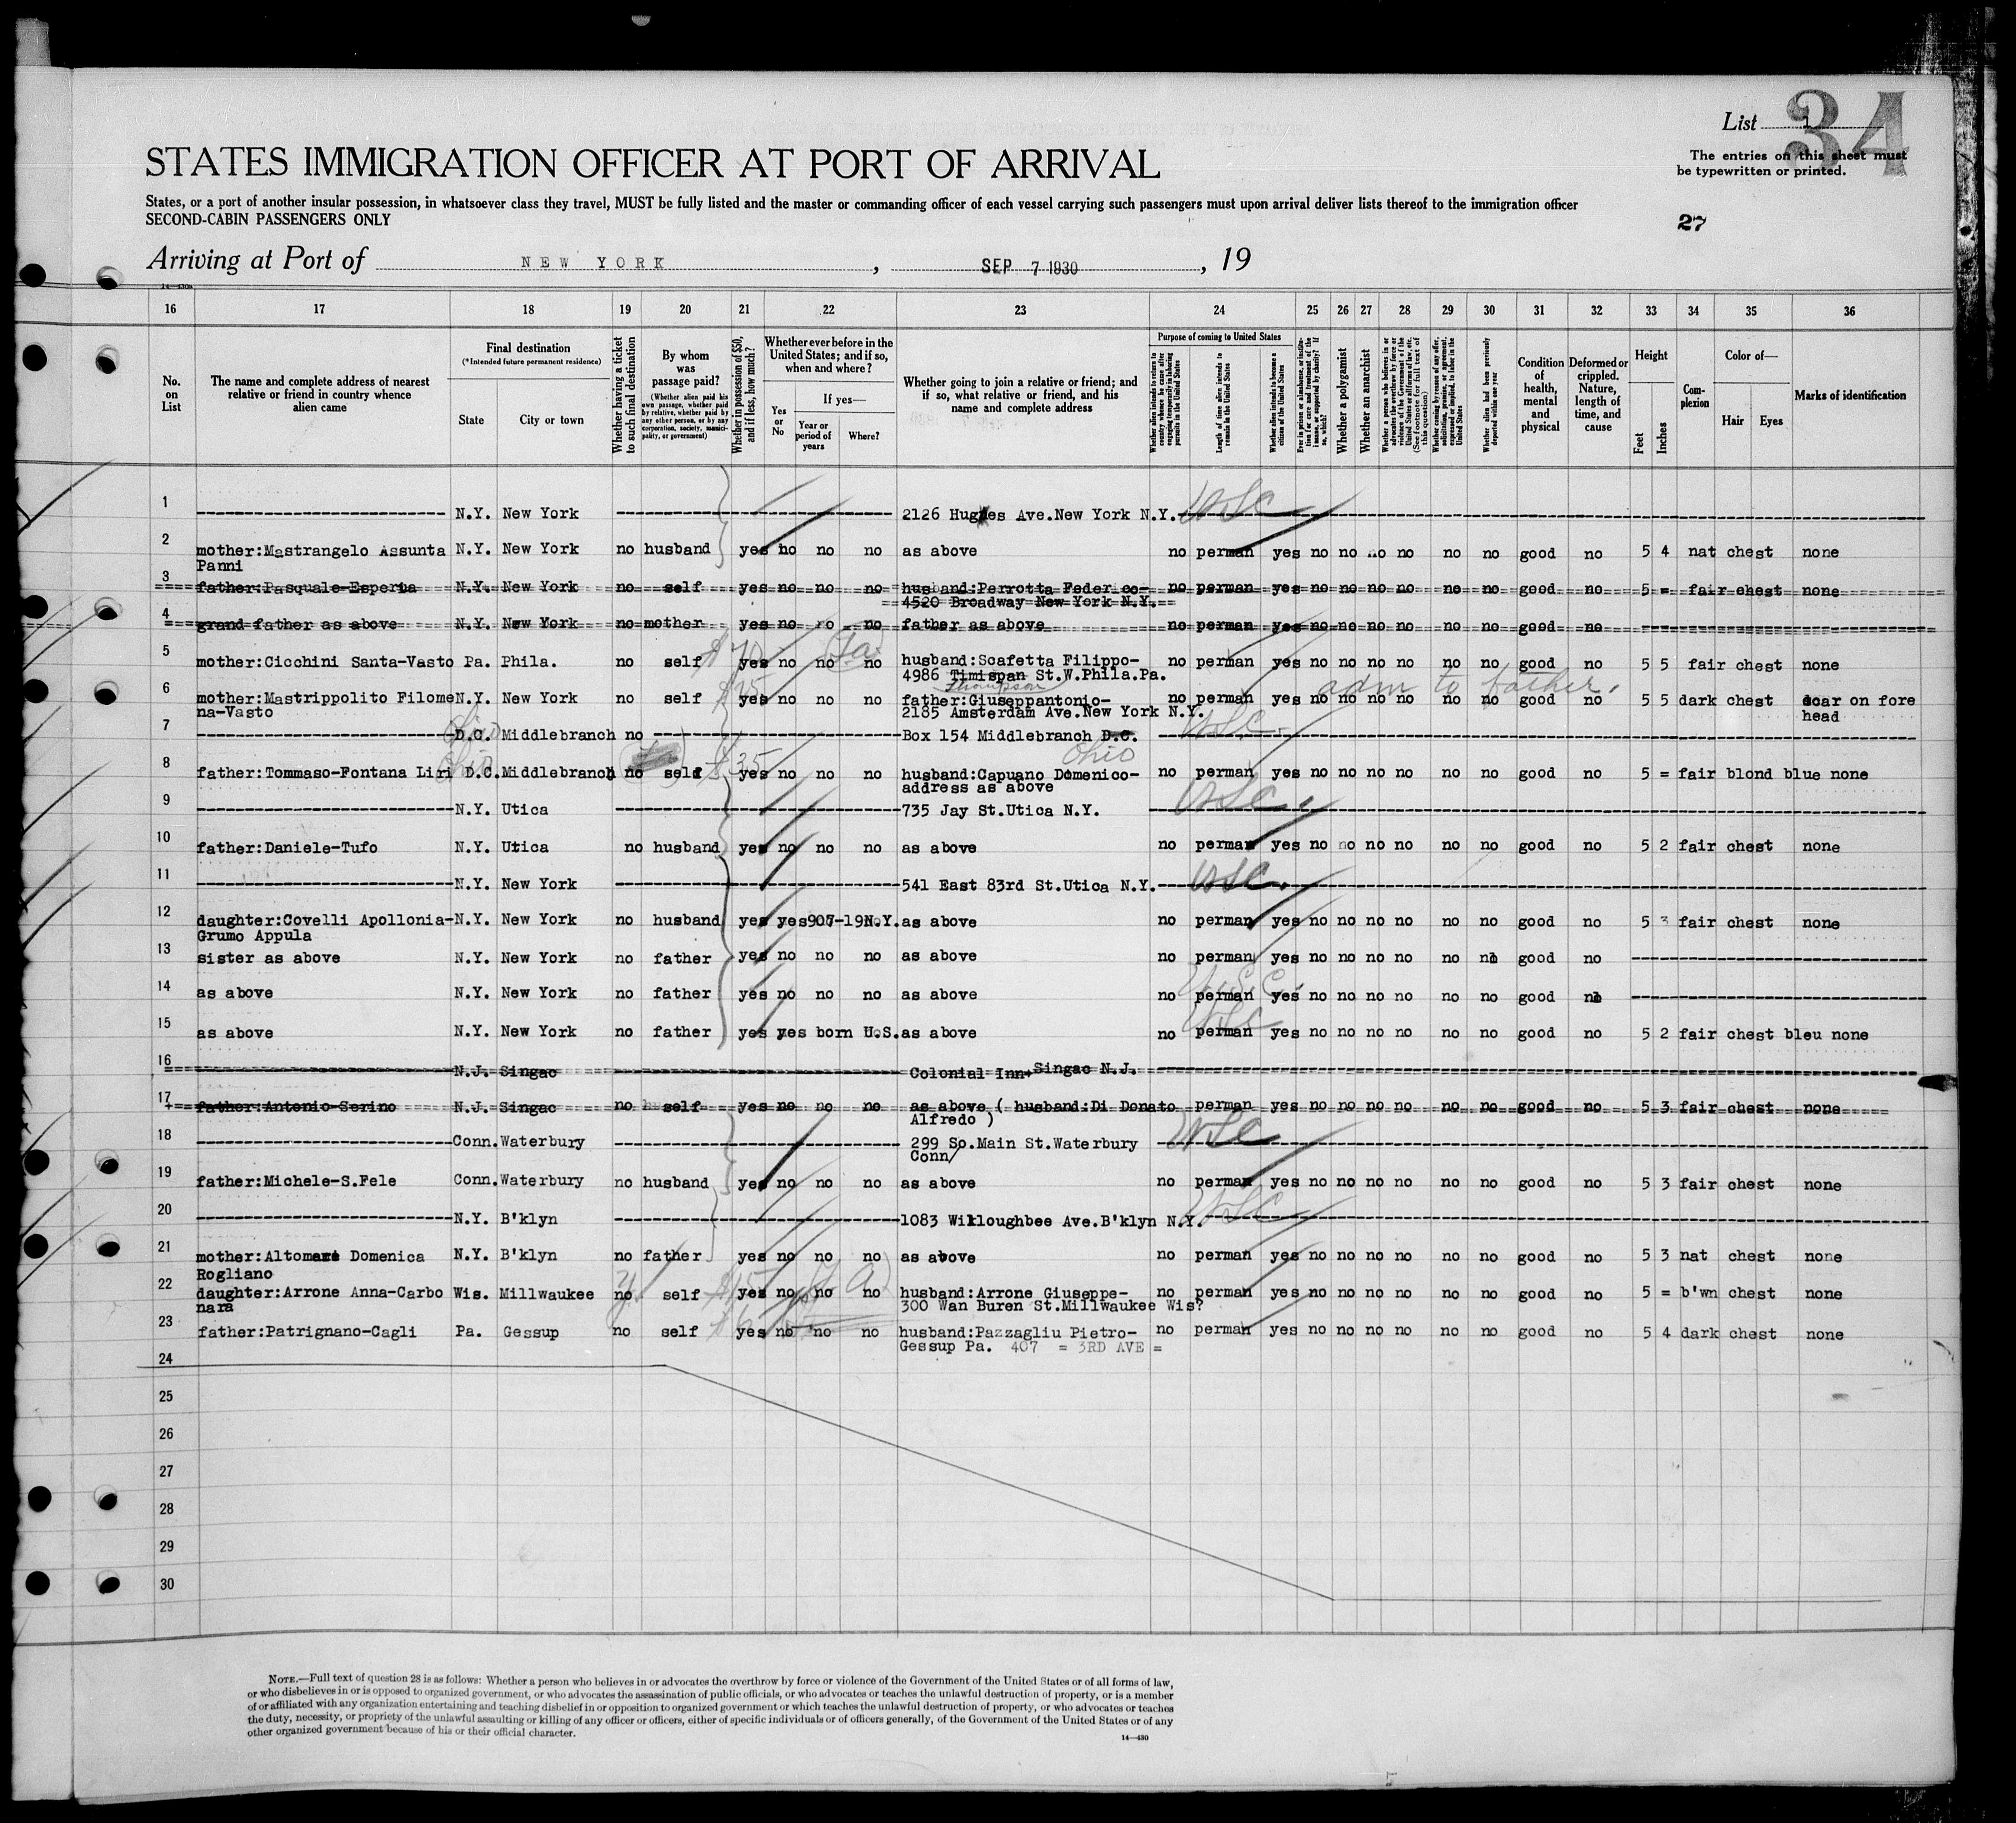 List 1
34
The entries on this sheet must
be typewritten or printed.
STATES IMMIGRATION OFFICER AT PORT OF ARRIVAL
States, or a port of another insular possession, in whatsoever class they travel, MUST be fully listed and the master or commanding officer of each vessel carrying such passengers must upon arrival deliver lists thereof to the immigration officer
SECOND-CABIN PASSENGERS ONLY
27
Arriving at Port of NEW YORK , SEP 7 1930 , 19
16 17 18 19 20 21 22 23 24 25 26 27 28 29 30 31 32 33 34 35 36
No. on List
The name and complete address of nearest relative or friend in country whence alien came
Final destination
(*Intended future permanent residence)
State
City or town
Whether having a ticket to such final destination
By whom was passage paid?
(Whether alien paid his own passage, whether paid by relative, whether paid by any other person, or by any corporation, society, municipality, or government)
Whether in possession of $50, and if less, how much?
Whether ever before in the United States; and if so, when and where?
Yes or No
If yes—
Year or period of years
Where?
Whether going to join a relative or friend; and if so, what relative or friend, and his name and complete address
Purpose of coming to United States
Whether alien intends to return to country whence he came after engaging temporarily in laboring pursuits in the United States
Length of time alien intends to remain in the United States
Whether alien intends to become a citizen of the United States
Ever in prison or almshouse, or institution for care and treatment of the insane, or supported by charity? If so, which?
Whether a polygamist
Whether an anarchist
Whether a person who believes in or advocates the overthrow by force or violence of the Government of the United States or all forms of law, etc. (See footnote for full text of this question)
Whether coming by reason of any offer, solicitation, promise, or agreement, expressed or implied, to labor in the United States
Whether alien had been previously deported within one year
Condition of health, mental and physical
Deformed or crippled. Nature, length of time, and cause
Height
Feet
Inches
Complexion
Color of—
Hair
Eyes
Marks of identification
1 N.Y. New York 2126 Hughes Ave.New York N.Y. USC
2 mother:Mastrangelo Assunta N.Y. New York no husband yes no no no as above no perman yes no no no no no no good no 5 4 nat chest none
Panni
3 father:Pasquale-Esperia N.Y. New York no self yes no no no husband:Perrotta Federico- no perman yes no no no no no no good no 5 = fair chest none
4520 Broadway New York N.Y.
4 grand father as above N.Y. New York no mother yes no no no father as above no perman yes no no no no no no good no
5 mother:Cicchini Santa-Vasto Pa. Phila. no self yes no no no husband:Scafetta Filippo- no perman yes no no no no no no good no 5 5 fair chest none
4986 Timispan St.W.Phila.Pa.
Thompson
6 mother:Mastrippolito Filome N.Y. New York no self $25 yes no no no father:Giuseppantonio- no perman yes no no no no no no good no 5 5 dark chest scar on fore
adm to father.
na-Vasto 2185 Amsterdam Ave.New York N.Y. head
7 Ohio D.C. Middlebranch no Box 154 Middlebranch D.C. USC
Ohio
8 father:Tommaso-Fontana Liri Ohio D.C. Middlebranch no self $35 yes no no no husband:Capuano Domenico- no perman yes no no no no no no good no 5 = fair blond blue none
address as above
9 N.Y. Utica 735 Jay St.Utica N.Y. USC
10 father:Daniele-Tufo N.Y. Utica no husband yes no no no as above no perman yes no no no no no no good no 5 2 fair chest none
11 N.Y. New York 541 East 83rd St.Utica N.Y. USC
12 daughter:Covelli Apollonia- N.Y. New York no husband yes yes 907-19 N.Y. as above no perman yes no no no no no no good no 5 3 fair chest none
Grumo Appula
13 sister as above N.Y. New York no father yes no no no as above no perman yes no no no no no no good no
14 as above N.Y. New York no father yes no no no as above no perman yes no no no no no no good no
U.S.C.
15 as above N.Y. New York no father yes yes born U.S. as above no perman yes no no no no no no good no 5 2 fair chest bleu none
USC
16 N.J. Singac Colonial Inn+Singac N.J.
17 father:Antonio-Serino N.J. Singac no self yes no no no as above ( husband:Di Donato perman yes no no no no no no good no 5 3 fair chest none
Alfredo )
18 Conn. Waterbury 299 So.Main St.Waterbury USC
Conn/
19 father:Michele-S.Fele Conn. Waterbury no husband yes no no no as above no perman yes no no no no no no good no 5 3 fair chest none
20 N.Y. B'klyn 1083 Willoughbee Ave.B'klyn N.Y. USC
21 mother:Altomare Domenica N.Y. B'klyn no father yes no no no as above no perman yes no no no no no no good no 5 3 nat chest none
Rogliano
22 daughter:Arrone Anna-Carbo Wis. Millwaukee no self $15 yes no no no husband:Arrone Giuseppe- no perman yes no no no no no no good no 5 = b'wn chest none
nara 300 Wan Buren St.Millwaukee Wis?
23 father:Patrignano-Cagli Pa. Gessup no self yes no no no husband:Pazzagliu Pietro- no perman yes no no no no no no good no 5 4 dark chest none
Gessup Pa. 407 = 3RD AVE =
24
25
26
27
28
29
30
NOTE.—Full text of question 28 is as follows: Whether a person who believes in or advocates the overthrow by force or violence of the Government of the United States or of all forms of law,
or who disbelieves in or is opposed to organized government, or who advocates the assassination of public officials, or who advocates or teaches the unlawful destruction of property, or is a member
of or affiliated with any organization entertaining and teaching disbelief in or opposition to organized government or which teaches the unlawful destruction of property, or who advocates or teaches
the duty, necessity, or propriety of the unlawful assaulting or killing of any officer or officers, either of specific individuals or of officers generally, of the Government of the United States or of any
other organized government because of his or their official character.
14—430